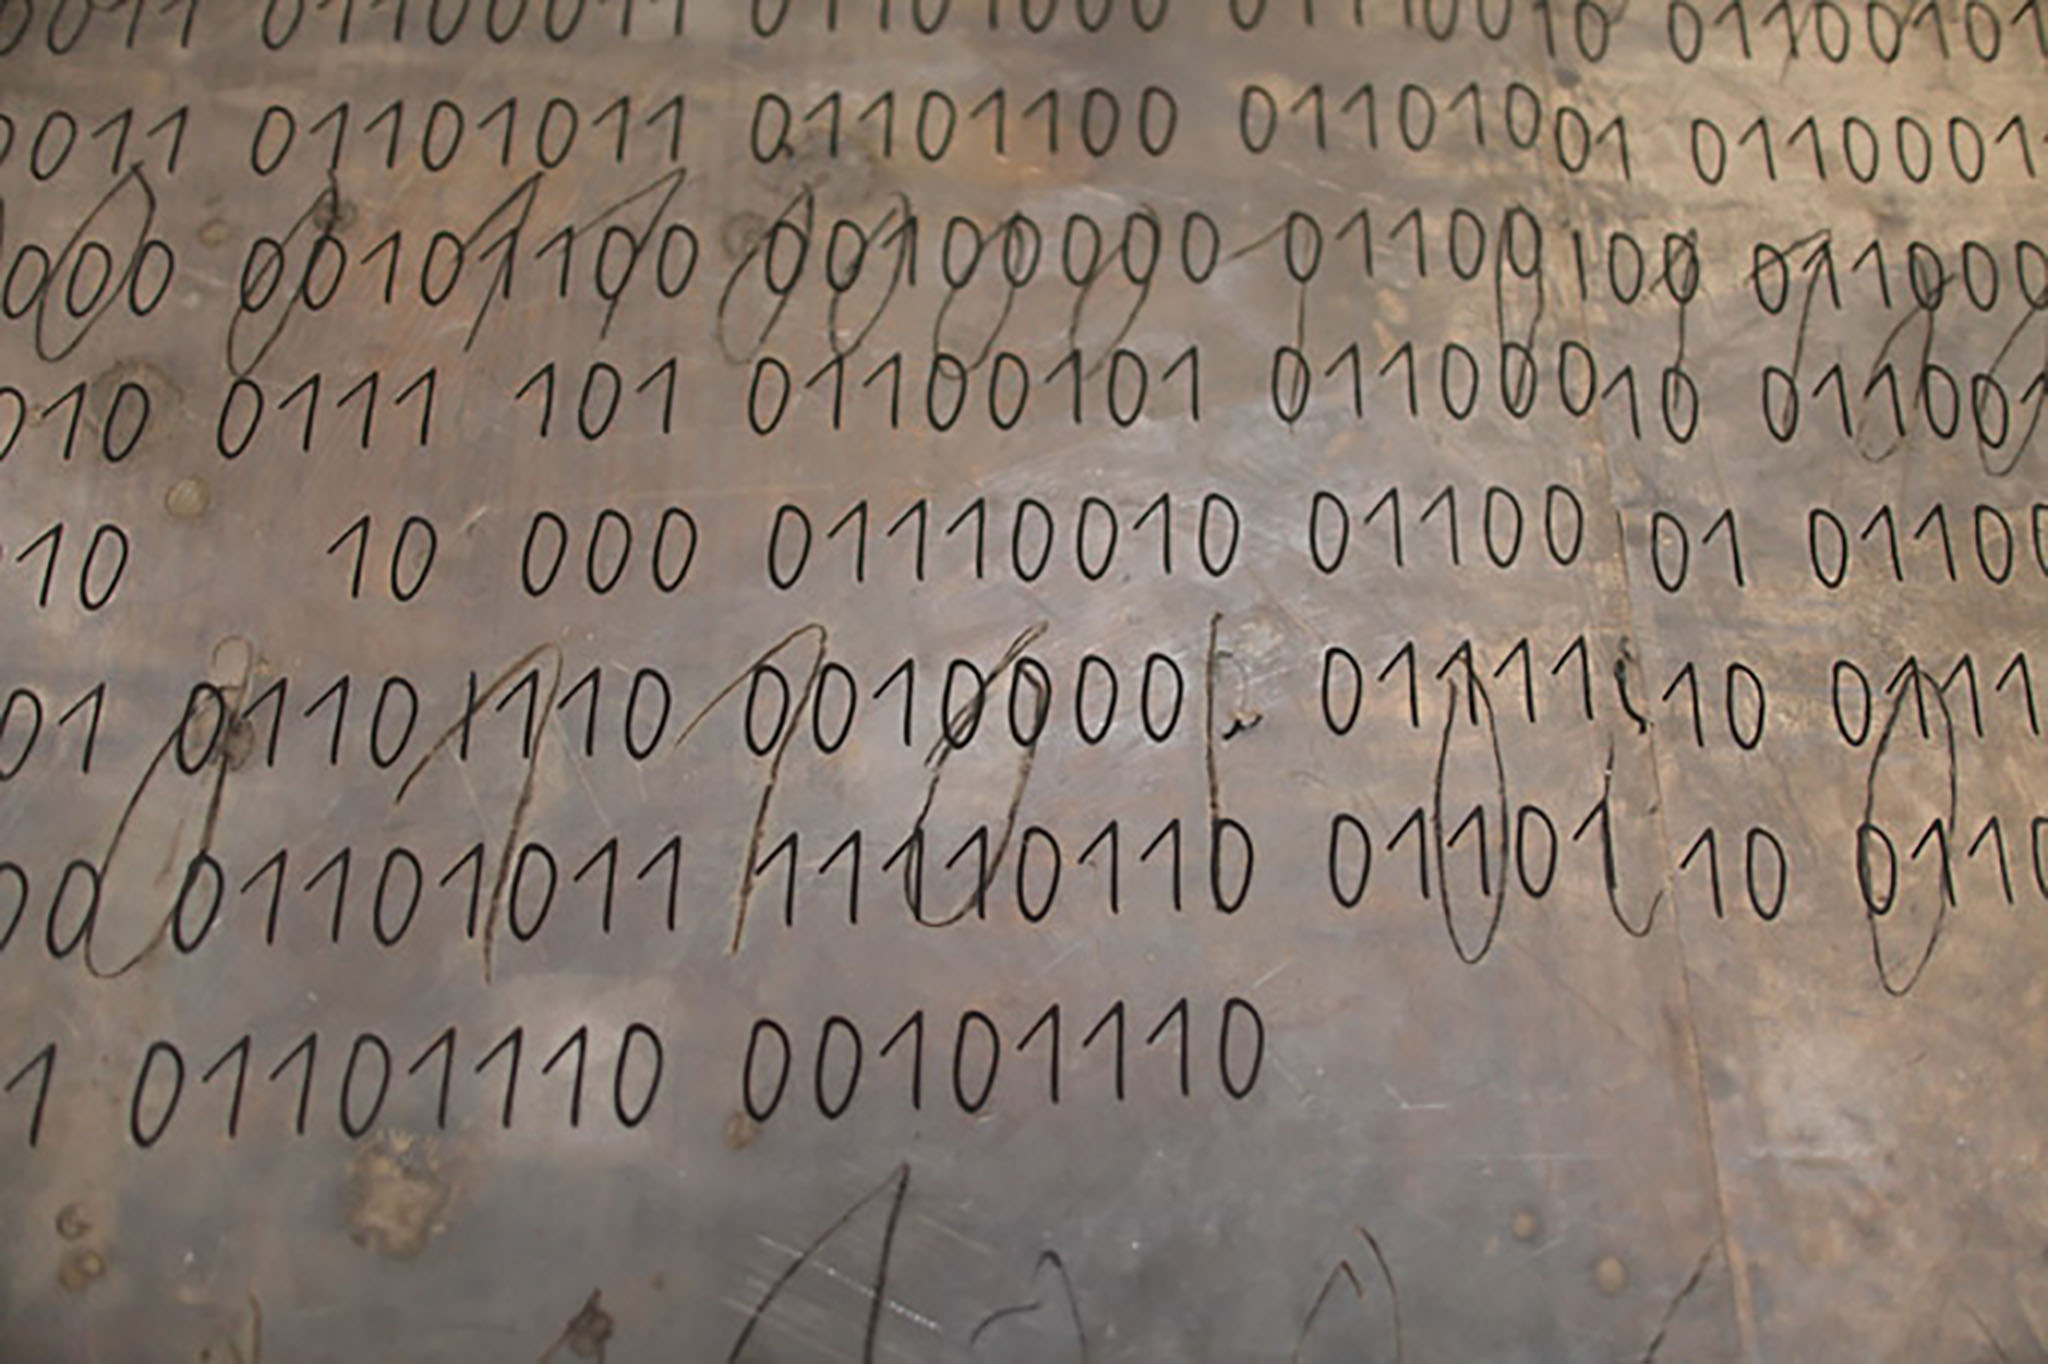 0011 01100011 01101000 01110010 01100101
0011 01101011 01101100 01101001 0110001
000 00101100 00100000 01100100 011000
010 0111 101 01100101 01100010 011001
10 10 000 01110010 01100 01 01100
01 01101110 0010000 01111 10 0111
00 01101011 11110110 01101 10 0110
1 01101110 00101110